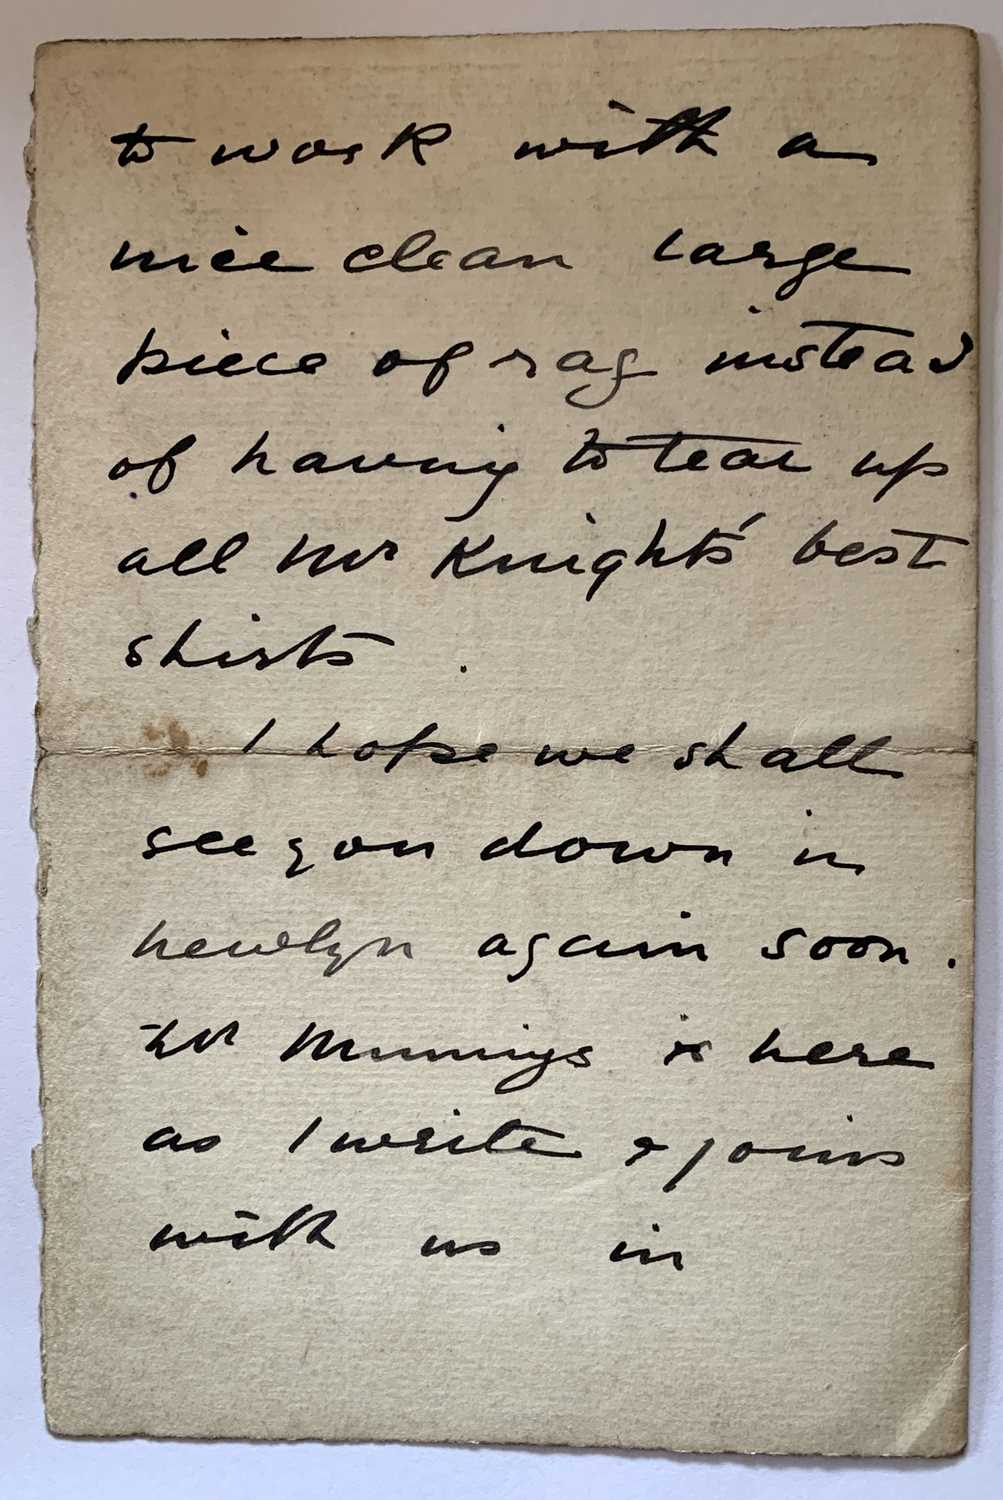 to work with a
nice clean large
piece of rag instead
of having to tear up
all Mr Knights' best
shirts.
I hope we shall
see you down in
Newlyn again soon.
Mr Munnings is here
as I write & joins
with us in